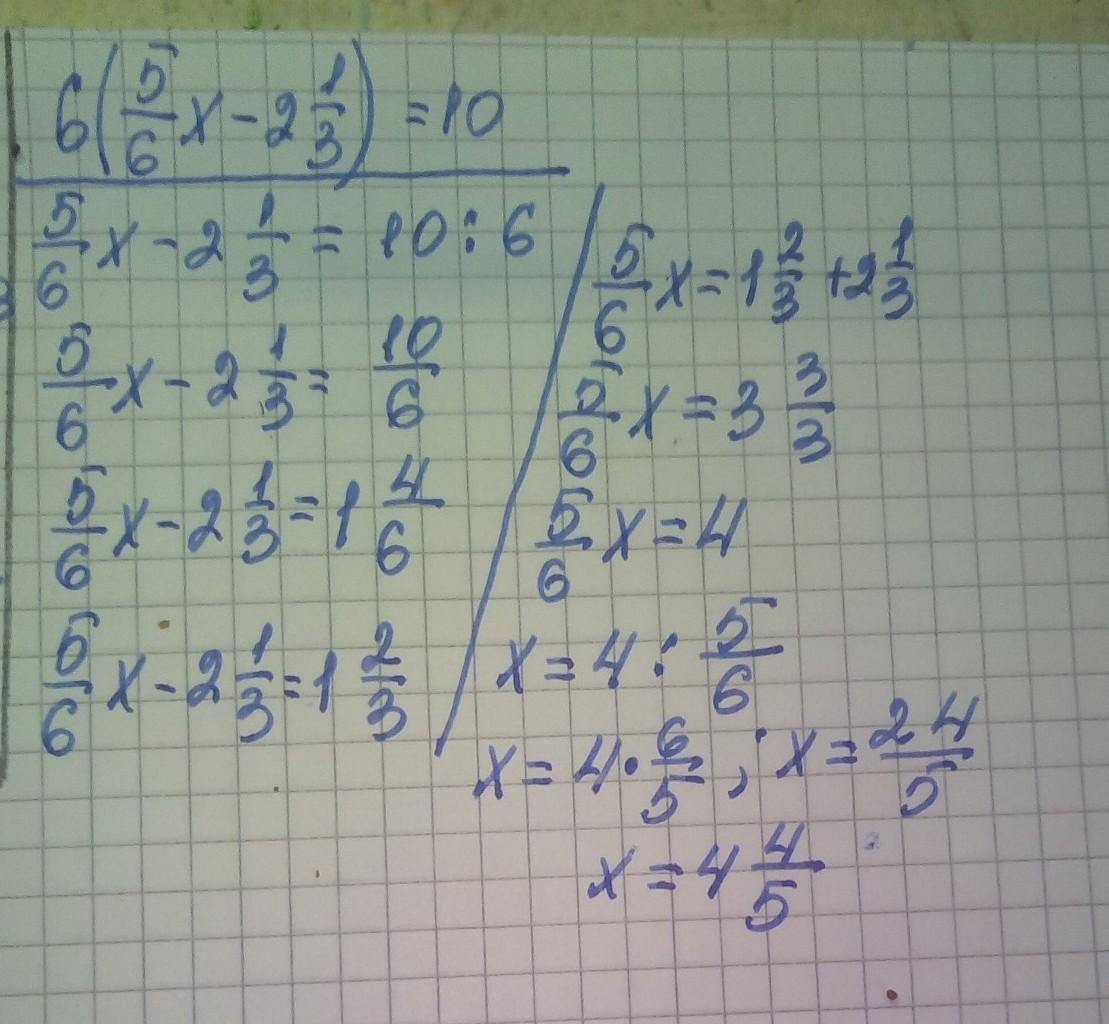 6(5/6 x - 2 1/3) = 10
5/6 x - 2 1/3 = 10 : 6
5/6 x - 2 1/3 = 10/6
5/6 x - 2 1/3 = 1 4/6
5/6 x - 2 1/3 = 1 2/3
5/6 x = 1 2/3 + 2 1/3
5/6 x = 3 3/3
5/6 x = 4
x = 4 : 5/6
x = 4 · 6/5 ; x = 24/5
x = 4 4/5